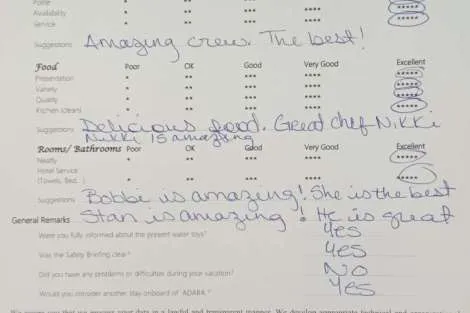 Polite * ** *** **** *****
Availability * ** *** **** *****
Service * ** *** **** *****
Suggestions Amazing crew. The best!
Food Poor OK Good Very Good Excellent
Presentation * ** *** **** *****
Variety * ** *** **** *****
Quality * ** *** **** *****
Kitchen (clean) * ** *** **** *****
Suggestions Delicious food. Great chef-Nikki
Nikki is amazing
Rooms/ Bathrooms Poor OK Good Very Good Excellent
Neatly * ** *** **** *****
Hotel Service
(Towels, Bed...) * ** *** **** *****
Suggestions Bobbi is amazing! She is the best
General Remarks Stan is amazing! He is great
Were you fully informed about the present water toys? Yes
Was the Safety Briefing clear? Yes
Did you have any problems or difficulties during your vacation? No
Would you consider another stay onboard of "ADARA"? Yes